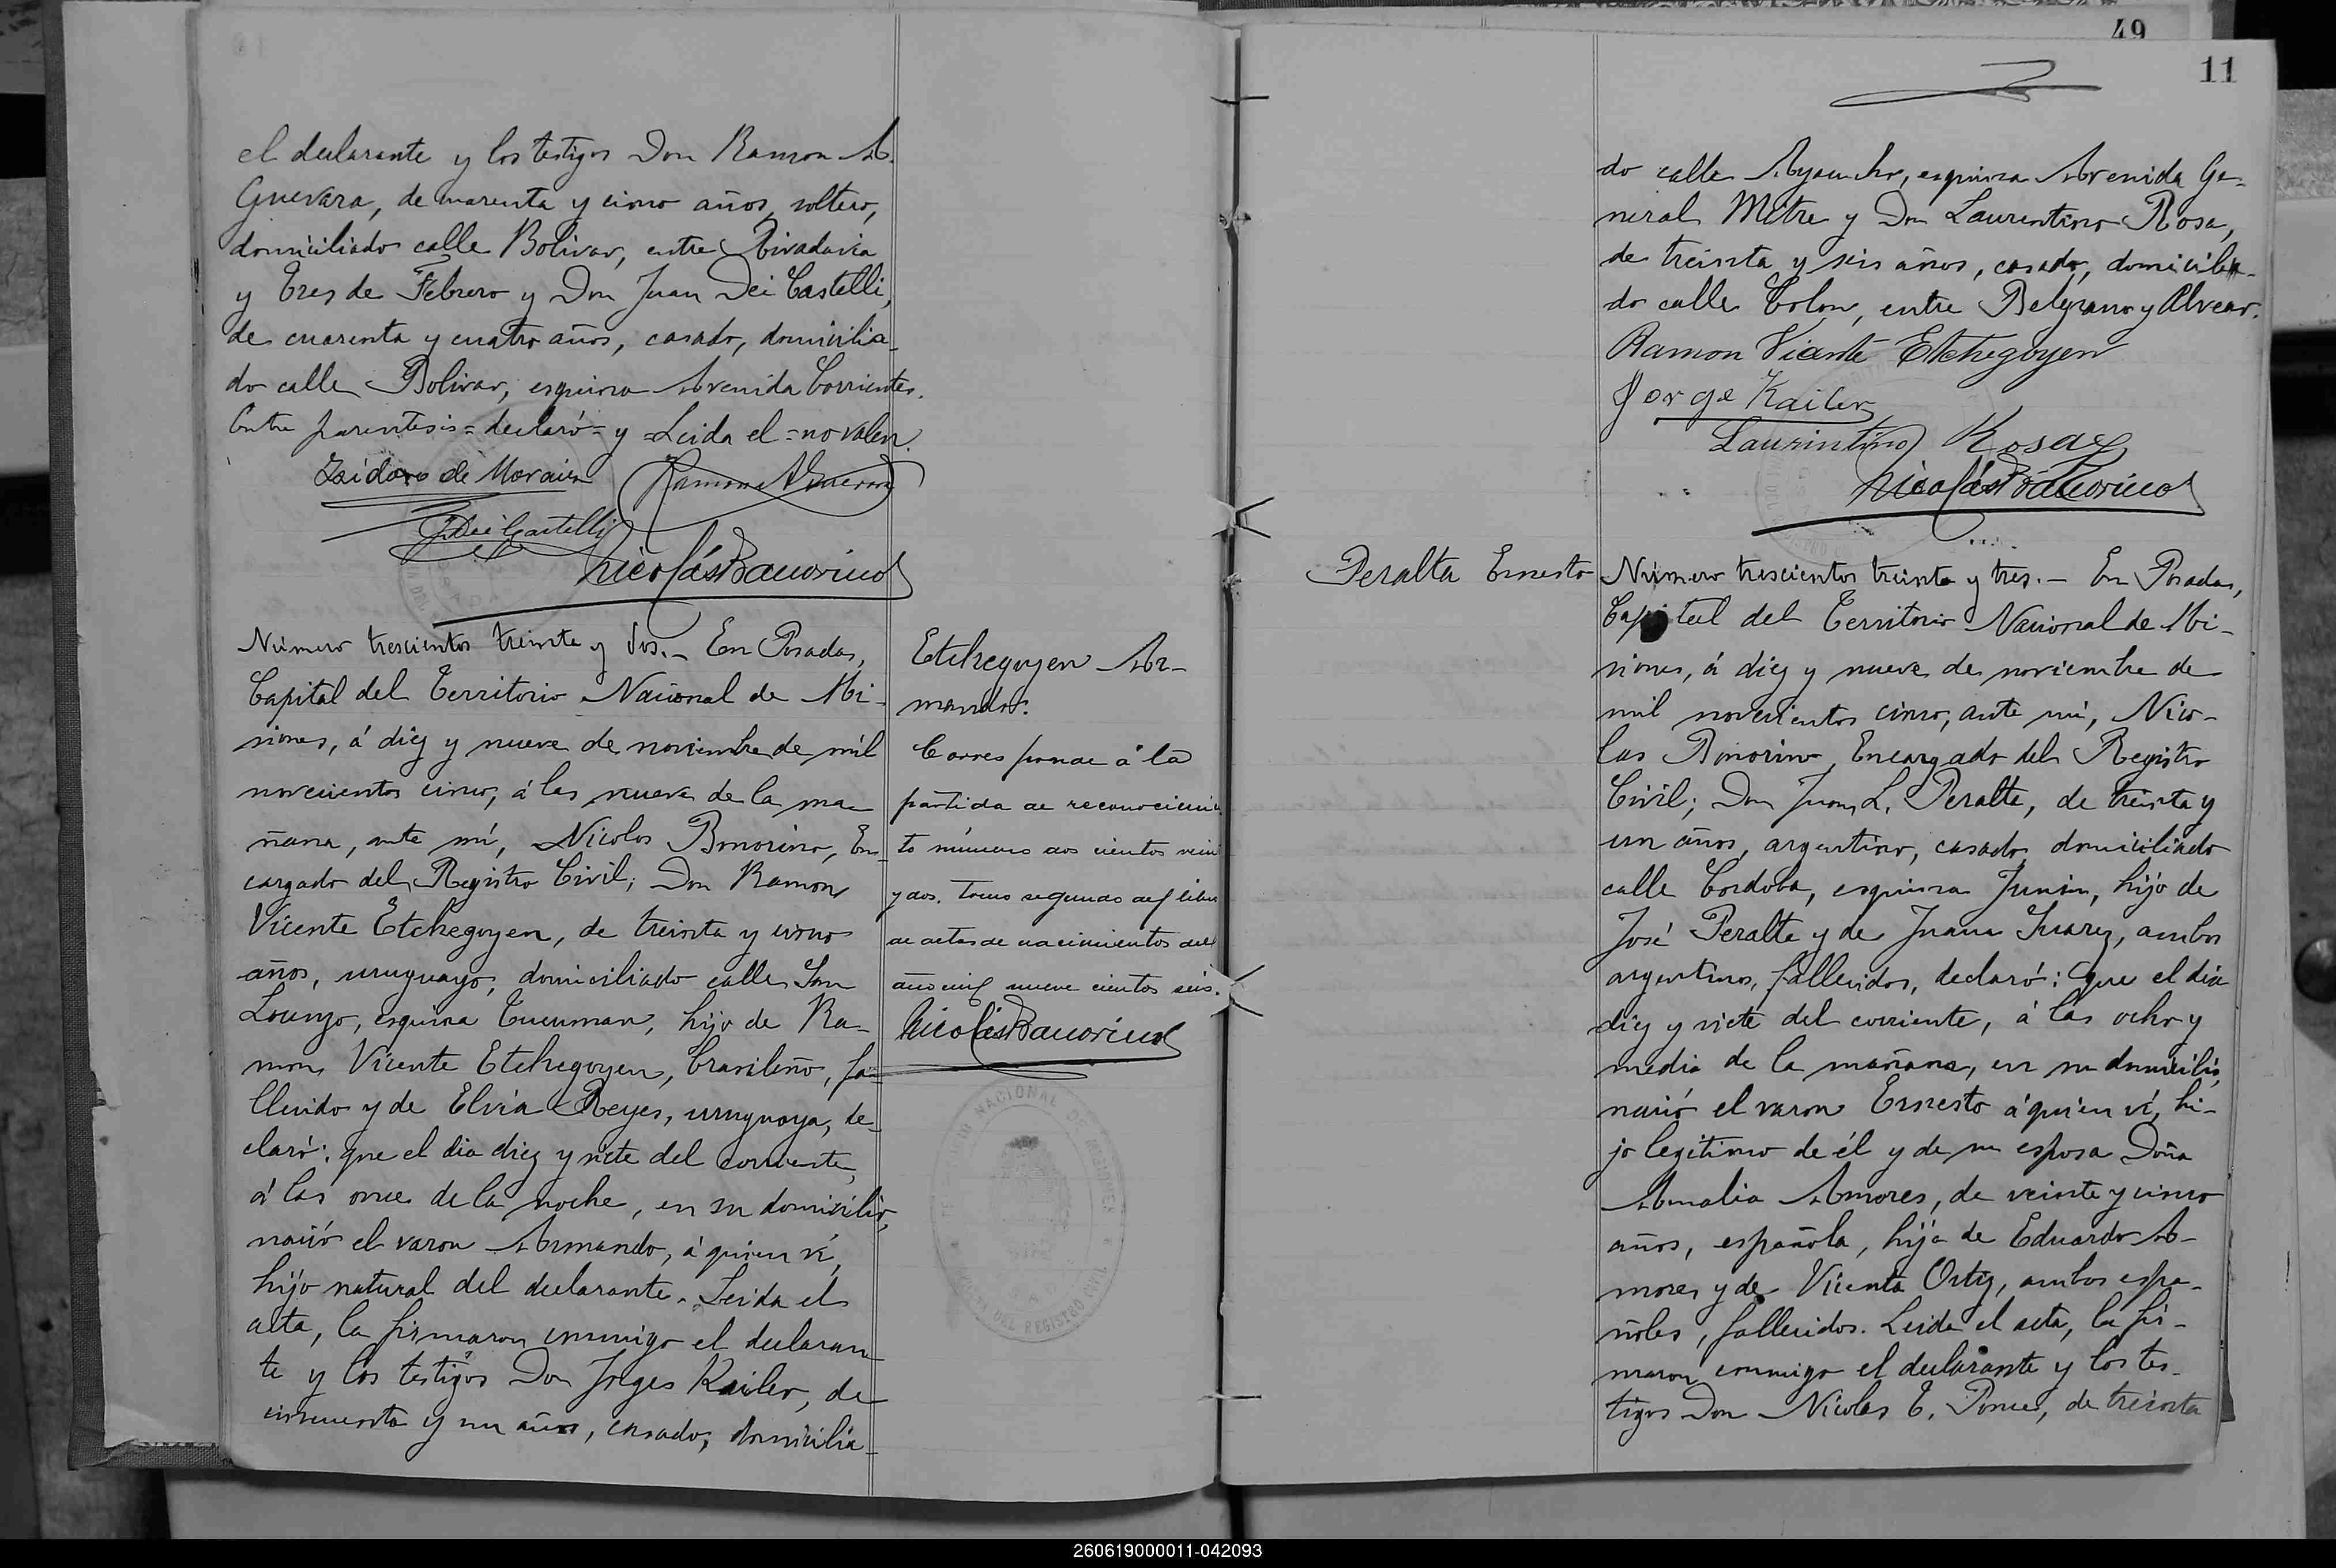 el declarante y los testigos Don Ramon A.
Guevara, de cuarenta y cinco años, soltero,
domiciliado calle Bolivar, entre Rivadavia
y Tres de Febrero y Don Juan Dei Castelli,
de cuarenta y cuatro años, casado, domicilia-
do calle Bolivar, esquina Avenida Corrientes.
Entre parentesis = declaró = y = Leida el = no valen
Isidoro de Morais
J. Dei Castelli
Nicolás Bonorino
Número trescientos treinta y dos. - En Posadas,
Capital del Territorio Nacional de Mi-
siones, á diez y nueve de noviembre de mil
novecientos cinco, á las nueve de la ma-
ñana, ante mí, Nicolas Bonorino, En-
cargado del Registro Civil; Don Ramon
Vicente Etchegoyen, de treinta y cinco
años, uruguayo, domiciliado calle San
Lorenzo, esquina Tucuman, hijo de Ra-
mon Vicente Etchegoyen, brasileño, fa-
llecido y de Elvia Reyes, uruguaya, de-
claró: que el dia diez y siete del corriente,
á las once de la noche, en su domicilio,
nació el varon Armando, á quien ví,
hijo natural del declarante. Leida el
acta, la firmaron conmigo el declaran-
te y los testigos Don Jorges Kailer, de
cincuenta y un años, casado, domicilia-
Etchegoyen Ar-
mando.
Corresponde á la
partida de reconocimien
to número dos cientos vein
y dos. tomo segundo del libro
de actas de nacimientos del
año mil nueve cientos seis.
Nicolás Bonorino
49
11
do calle Ayacucho, esquina Avenida Ge-
neral Mitre y Don Laurentino Rosa,
de treinta y seis años, casado, domicilia-
do calle Colon, entre Belgrano y Alvear.
Ramon Vicente Etchegoyen
Jorge Kailer
Laurintino Rosa
Nicolás Bonorino
Peralta Ernesto
Número trescientos treinta y tres. - En Posadas,
Capital del Territorio Nacional de Mi-
siones, á diez y nueve de noviembre de
mil novecientos cinco, ante mí, Nico-
las Bonorino, Encargado del Registro
Civil; Don Juan L. Peralta, de treinta y
un años, argentino, casado, domiciliado
calle Cordoba, esquina Junin, hijo de
José Peralta y de Juana Juarez, ambos
argentinos, fallecidos, declaró: Que el dia
diez y siete del corriente, á las ocho y
media de la mañana, en su domicilio,
nació el varon Ernesto á quien ví, hi-
jo legitimo de él y de su esposa Doña
Amalia Amores, de veinte y cinco
años, española, hija de Eduardo A-
mores y de Vicenta Ortiz, ambos espa-
ñoles, fallecidos. Leida el acta, la fir-
maron conmigo el declarante y los tes-
tigos Don Nicolas E. Ponce, de treinta
260619000011-042093